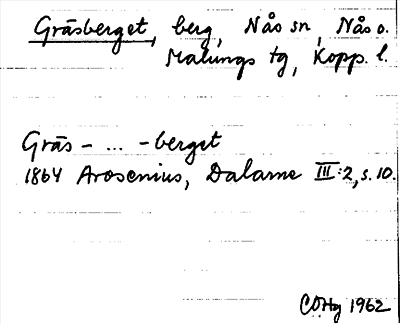 Gräsberget, berg, Nås sn, Nås o.
Malungs tg, Kopp. l.
Gräs - ... -berget
1864 Arosenius, Dalarne III:2, s. 10.
COHg 1962